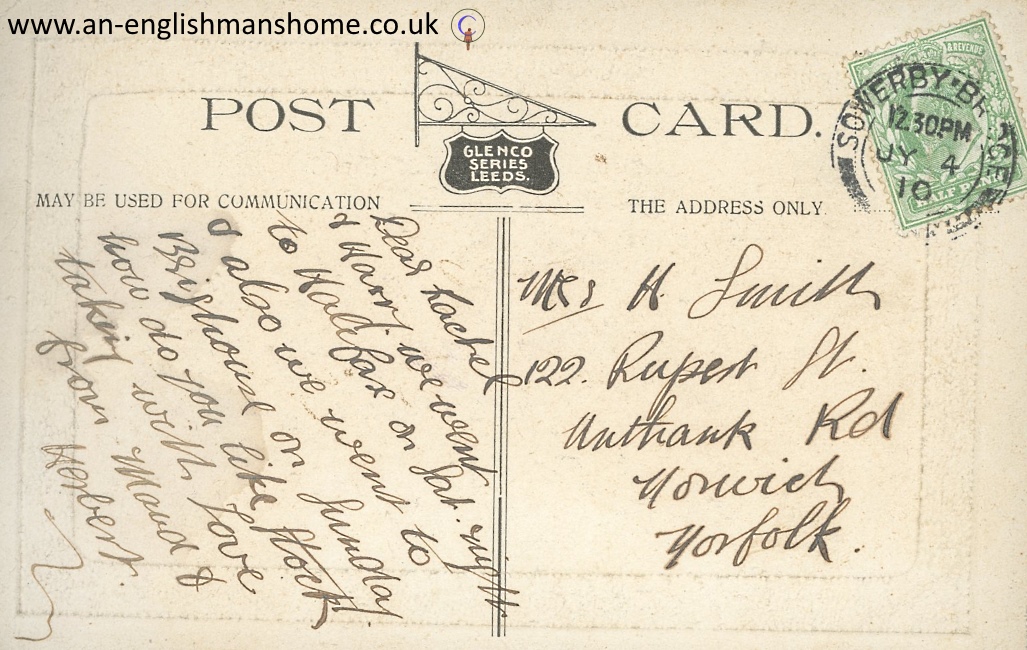 www.an-englishmanshome.co.uk
POST CARD.
GLENCO
SERIES
LEEDS.
MAY BE USED FOR COMMUNICATION
THE ADDRESS ONLY
SOWERBY BRIDGE
12.30PM
JY 4
10
& REVENUE
HALF
Dear Rachel
& Harry we went
to Halifax on Sat. night
& also we went to
Brighouse on Sunday
how do you like Stock
taking with Love
from Maud &
Herbert.
Mrs H. Smith
122. Rupert St.
Unthank Rd
Norwich
Norfolk.